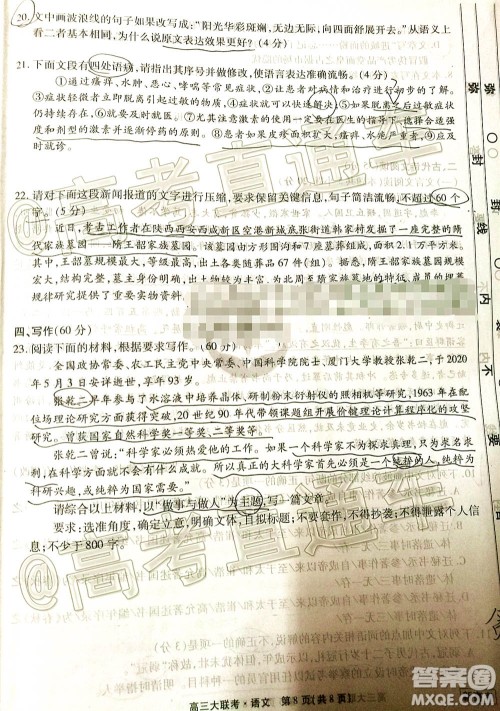 20. 文中画波浪线的句子如果改写成：“阳光华彩斑斓，无边无际，向四面舒展开去。”从语义上
看二者基本相同，为什么说原文表达效果更好？（4分）
21. 下面文段有四处语病，请指出其序号并做修改，使语言表达准确流畅。（4分）
①通过瘙痒、水肿、恶心、哮喘等常见症状，②患者能对病情和治疗进行初步的了解。
③症状轻微者立即脱离引起过敏的物质，④症状就能缓解，⑤如果脱离了后过敏症状
仍持续存在，⑥就要及时就医。⑦尤其注意的使用一定要在医生的指导下，
度和剂型的激素并逐渐停药的原则。⑧患者如果出现瘙痒，水肿，严重者，⑨应及
时就诊。
22. 请对下面这段新闻报道的文字进行压缩，要求保留关键信息，句子简洁流畅，不超过60个
字。（5分）
近日，考古工作者在陕西西安西咸新区空港新城底张街道韩家村发掘了一座完整的隋
代家族墓园——隋王韶家族墓园。该墓园由方形围沟和7座墓葬组成，面积2.1万平方米。
其中，王韶墓规模最大，已出土各类随葬品67件（组）。据悉，隋王韶家族墓园规模
宏大，结构完整，已发掘墓葬出土文物较为丰富，为北周至隋家族墓地的特征、成员的埋葬
规律研究提供了重要资料。
四、写作（60分）
23. 阅读下面的材料，根据要求写作。（60分）
全国政协常委、农工民主党中央常委、中国科学院院士、厦门大学教授张乾二，于2020
年5月3日安详逝世，享年93岁。
张乾二早年参与了水溶液中培养晶体、研制粉末衍射仪等应用性研究，1963年在配
位场理论研究方面获得突破，20世纪90年代带领课题组开展价键理论计算程序化的攻坚
研究。曾获国家自然科学奖一等奖、二等奖等。
张乾二曾说：“科学家必须热爱他的工作。如果一个科学家不为探求真理，只为求名求
利，在科学方面就不会有什么成就。所以真正的大科学家首先必须是一个纯粹的人，纯粹为
科研兴趣，或纯粹为国家需要。”
请综合以上材料，以“做事与做人”为主题，写一篇文章。
要求：选准角度，确定立意，明确文体，自拟标题；不要套作，不得抄袭；不得泄露个人信
息；不少于800字。
高三大联考·语文 第8页（共8页）
高考直通车
高考直通车
密
封
线
内
不
要
答
答案圈
MXQE.COM